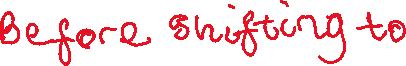 Before shifting to